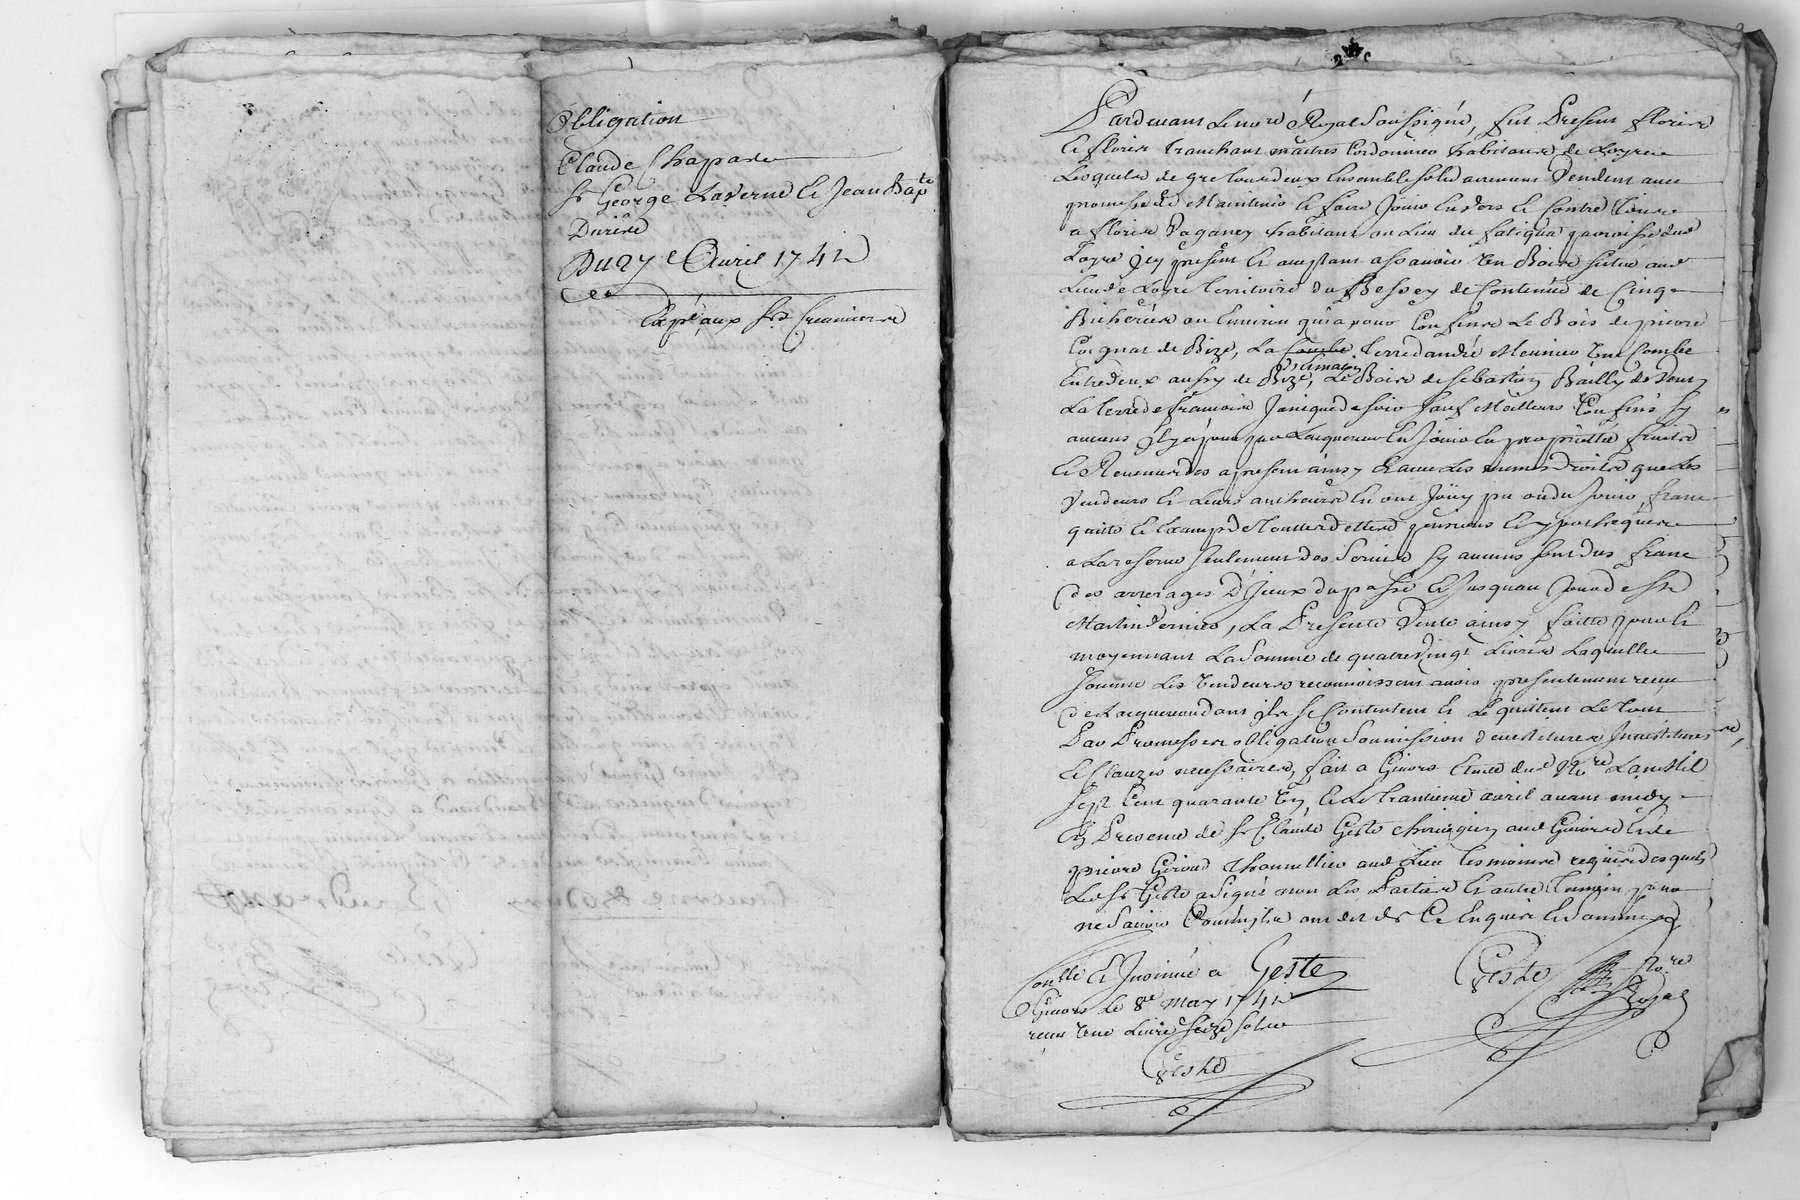 Obligation
Claude Chapard
Sr George Laverne Et Jean Bapte
Durieu
Du 27e Avril 1741
Expé aux Srs Creanciers
Pardevant Le nore Royal Soussigné, fut Present florise
Et floris tranchant maitres Cordonnier habitants de Loyre
Lesquels de gre tous deux Ensemble solidairement Vendent avec
promesse de Maintenir Et faire Jouir Envers Et Contre tous
a floris Paganey habitant au Lieu de paroisse dud
Loyre icy present Et acceptant assavoir Un Bois situé aud
Lieu de Loyre territoire du Bessey de Contenue de Cinq
Bicherées ou Environ qui a pour Confins Le Bois de pierre
Coignat de Bize, La terre d'andré Meunier Une Combe
Entredeux aussy de Bize, Le Bois de sebastien Bailly de Vent
La terre de francois Janique de soir sauf Meilleurs Confins sy
aucuns il y a pour par Lacquereur En Jouir En proprietté fruits
Et Revenus des apresent ainsy Et avec Les mesmes Droits que Les
Vendeurs Et Leurs autheurs En ont Joüy pu ou du Jouir franc
quitte Et Exempt de toutes dettes pensions Et ypotheques
a La reserve seulement des Servis sy aucuns sont dus franc
des arrerages d'Iceux du passé Et Jusquau Jour de st
Martin dernier, La Presente Vente ainsy faitte pour Et
moyennant La Somme de quatre Vingt Livres Laquelle
somme Les Vendeurs reconnoissent avoir presentement receu
de Lacquereur dont ils se Contentent Et Le quittent Le tout
Par Promesses obligation Soumission devestitures Investitures
Et Clauzes necessaires, fait a Givors Etude dud Nore Lan Mil
sept Cent quarante Un, Et Le trantieme avril avant midy
En Presence de sr Claude Geste chirurgien aud Givors Et de
pierre Giroud thonnellier aud Lieu tesmoins requis desquels
Led Sr Geste a signé non Les Parties Et autre temoin pour
ne Scavoir Comm'ils ont dit de Ce Enquis Et Sommés
Geste
Geste Nore Royal
Conllé Et Insinué a
Givors Le 8e may 1741
receu Une Livre seize sols
Geste